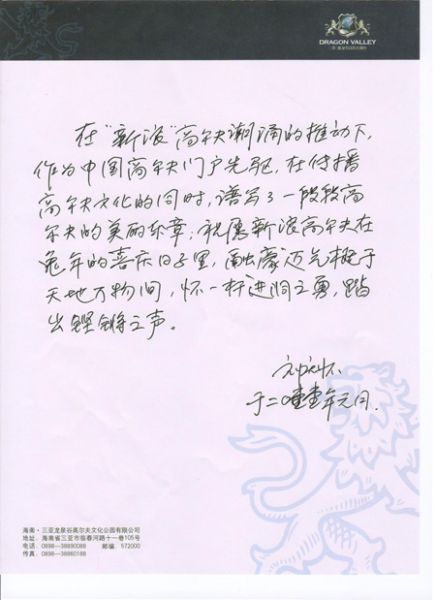 DRAGON VALLEY
在“新浪”高尔夫潮涌的推动下,
作为中国高尔夫门户先驱,在传播
高尔夫文化的同时,谱写了一段段高
尔夫的美丽乐章;祝愿新浪高尔夫在
兔年的喜庆日子里,融豪迈气概于
天地万物间,怀一杆进洞之勇,踏
出铿锵之声。
于二〇壹壹年元月.
海南·三亚龙泉谷高尔夫文化公园有限公司
地址:海南省三亚市临春河路十一巷105号
电话:0898—38880088 邮编:572000
传真:0898—38880188